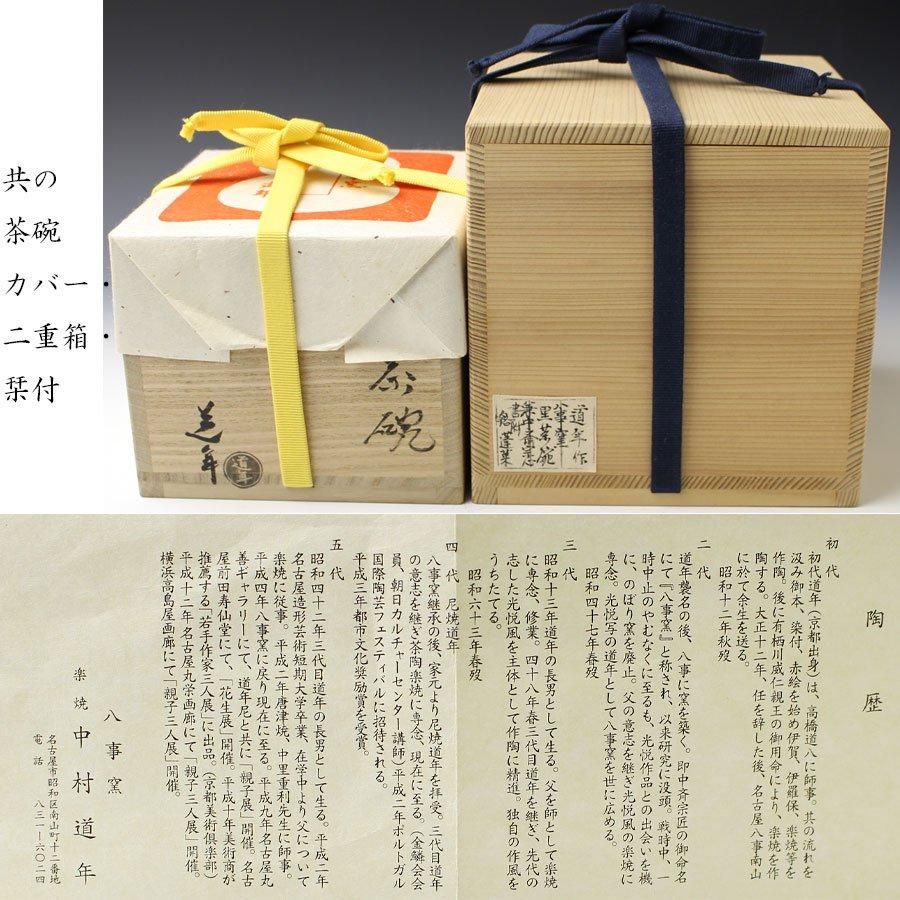 共の
茶碗
カバー・
二重箱・
栞付
茶碗
道年
道年
道年作
八事窯
黒茶碗
陶歴
初代
初代道年(京都出身)は、高橋道八に師事。其の流れを
汲み御本、染付、赤絵を始め伊賀、伊羅保、楽焼等を
作陶。後に有栖川威仁親王の御用命により、楽焼を作
陶する。大正十二年、任を辞した後、名古屋八事南山
に於て余生を送る。
昭和十一年秋歿
二代
道年襲名の後、八事に窯を築く。即中斉宗匠の御命名
にて『八事窯』と称され、以来研究に没頭。戦時中、一
時中止のやむなくに至るも、光悦作品との出会いを機
に、のぼり窯を廃止。父の意志を継ぎ光悦風の楽焼に
専念。光悦写の道年として八事窯を世に広める。
昭和四十七年春歿
三代
昭和十三年道年の長男として生る。父を師として楽焼
に専念、修業。四十八年春三代目道年を継ぎ、先代の
志した光悦風を主体として作陶に精進。独自の作風を
うちたてる。
昭和六十三年春歿
四代 尼焼道年
八事窯継承の後、家元より尼焼道年を拝受。三代目道年
の意志を継ぎ茶陶楽焼に専念、現在に至る。(金鱗会会
員、朝日カルチャーセンター講師)平成二年ポルトガル
国際陶芸フェスティバルに招待される。
平成三年都市文化奨励賞を受賞。
五代
昭和四十二年三代目道年の長男として生る。平成二年
名古屋造形芸術短期大学卒業、在学中より父について
楽焼に従事。平成二年唐津焼、中里重利先生に師事。
平成四年八事窯に戻り現在に至る。平成九年名古屋丸
善ギャラリーにて、道年尼と共に「親子展」開催。名古
屋前田寿仙堂にて、「花生展」開催。平成十年美術商が
推薦する「若手作家三人展」に出品。(京都美術倶楽部)
平成十二年名古屋丸栄画廊にて「親子三人展」開催。
横浜高島屋画廊にて、「親子三人展」開催。
八事窯
楽焼 中村道年
名古屋市昭和区南山町十二番地
電話 八三一-六〇二四